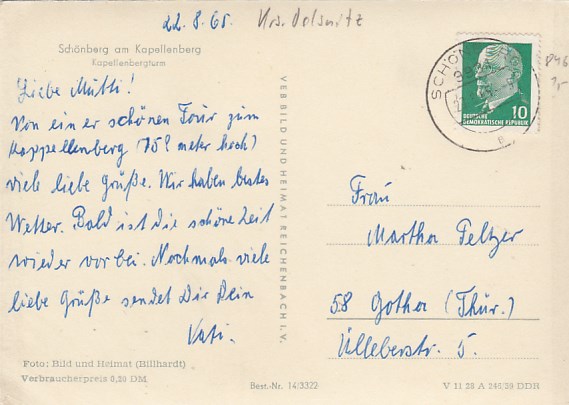 22.8.65 Krs. Oelsnitz
Schönberg am Kapellenberg
Kapellenbergturm
Liebe Mutti!
Von einer schönen Tour zum
Kappellenberg (759 meter hoch)
viele liebe Grüße. Wir haben bestes
Wetter. Bald ist die schöne Zeit
wieder vorbei. Nochmals viele
liebe Grüße sendet Dir Dein
Foto: Bild und Heimat (Billhardt)
Verbraucherpreis 0,20 DM
VEB BILD UND HEIMAT REICHENBACH I. V.
Best.-Nr. 14/3322
SCHÖN
10
DEUTSCHE
DEMOKRATISCHE REPUBLIK
Frau
Martha Feltzer
58 Gotha (Thür.)
Ülleberstr. 5.
V 11 28 A 246/59 DDR